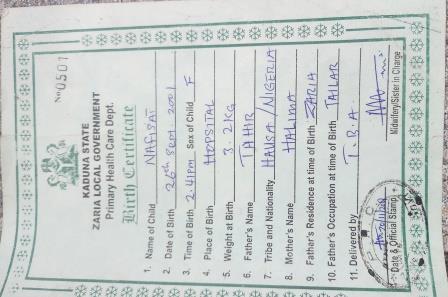 No 0501
KADUNA STATE
ZARIA LOCAL GOVERNMENT
Primary Health Care Dept.
Birth Certificate
1. Name of Child NAFISAT
2. Date of Birth 26th SEPT. 2001
3. Time of Birth 2:41PM Sex of Child F
4. Place of Birth HOPSITAL
5. Weight at Birth 3.2KG
6. Father's Name TAHIR
7. Tribe and Nationality HAUSA/NIGERIA
8. Mother's Name HALIMA
9. Father's Residence at time of Birth ZARIA
10. Father's Occupation at time of Birth TAILAR
11. Delivered by T.B.A
Date & Official Stamp
Midwifery/Sister in Charge